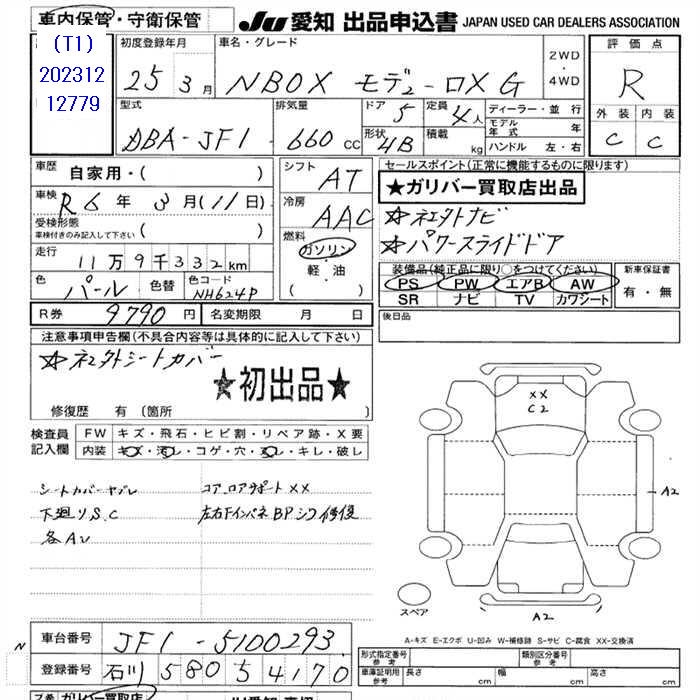 車内保管・守衛保管
JU 愛知 出品申込書 JAPAN USED CAR DEALERS ASSOCIATION
(T1)
202312
12779
初度登録年月
25年3月
車名・グレード
NBOX モデューロX G
2WD
・
4WD
評価点
R
外装 内装
C C
型式
DBA-JF1
排気量
660 CC
ドア
5
定員
4人
形状
4B
積載
kg
ディーラー・並行
モデル年式 年
ハンドル 左・右
車歴
自家用・( )
車検
R6年3月(11日)
受検形態
車検付きのみ記入して下さい ( )
走行
11万9千332km
色
パール
色替
色コード
NH624P
シフト
AT
冷房
AAC
燃料
ガソリン
・
軽・油
( )
セールスポイント(正常に機能するものに限ります)
★ガリバー買取店出品
☆社外ナビ
☆パワースライドドア
装備品(純正品に限り○をつけてください)
PS PW エアB AW
SR ナビ TV カワシート
新車保証書
有・無
R券 9790円
名変期限 月 日
後日品
注意事項申告欄(不具合内容等は具体的に記入して下さい)
☆社外シートカバー
★初出品★
修復歴 有(箇所 )
検査員
記入欄
FW キズ・飛石・ヒビ割・リペア跡・X要
内装 キズ・汚レ・コゲ・穴・スレ・キレ・破レ
シートカバーヤブレ
下廻りS.C
各AU
コア、ロアサポートXX
左右FインパネBPシワ修復
XX
C2
A2
A2
スペア
A-キズ E-エクボ U-凹み W-補修跡 S-サビ C-腐食 XX-交換済
車台番号 JF1-5100293
N
登録番号 石川 580 5 4170
形式指定番号
参考
類別区分番号
参考
車庫証明用
参考
長さ cm 幅 cm 高さ cm
ガリバー買取店